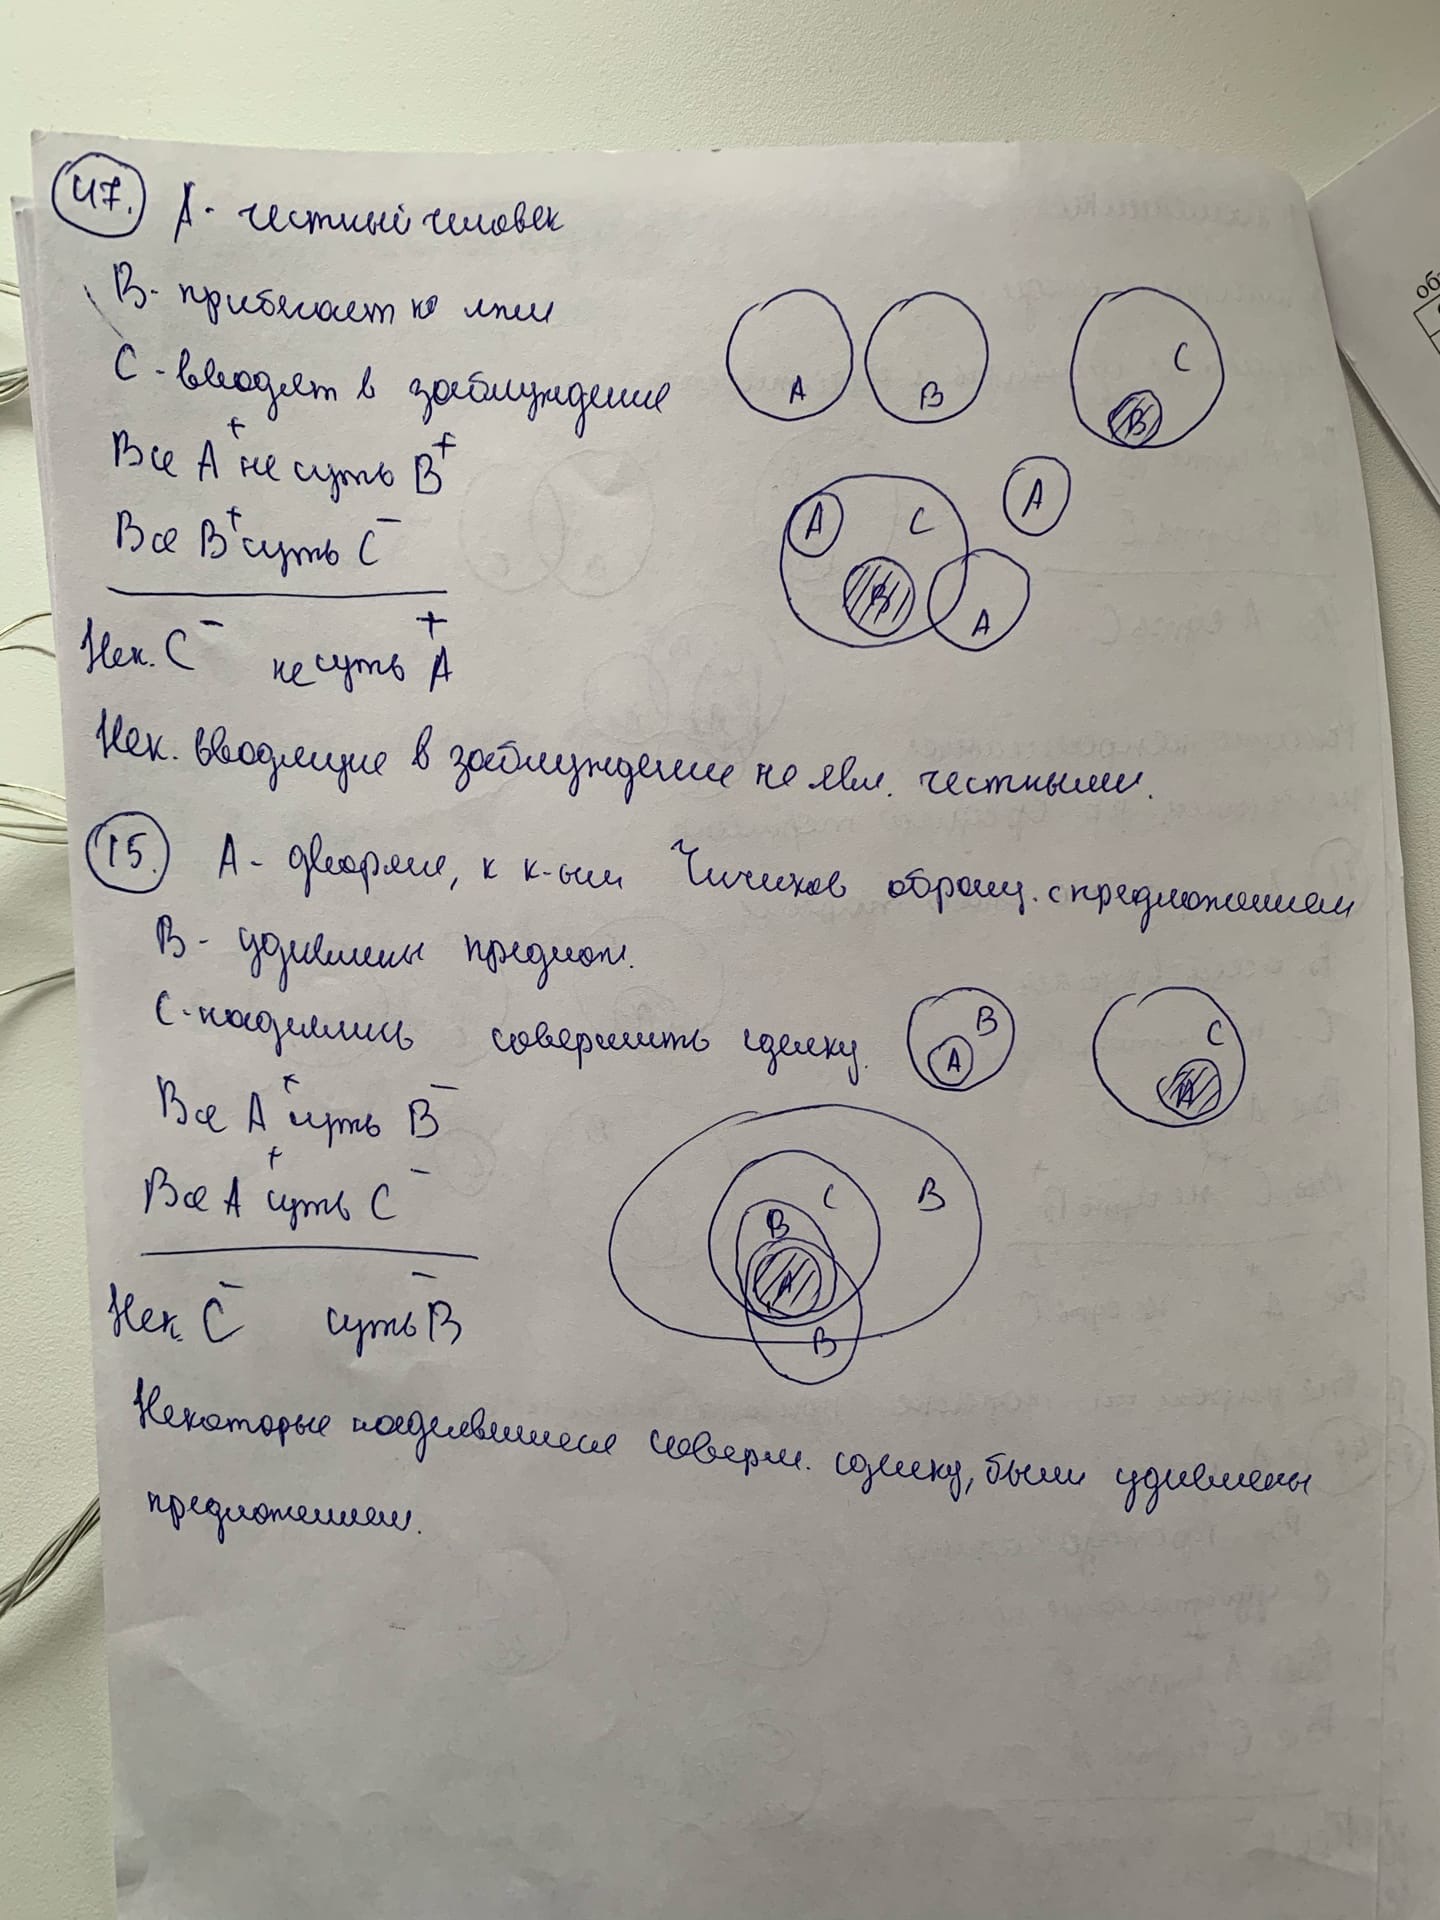 47. A - честный человек
B - прибегает ко лжи
C - вводят в заблуждение
Все A⁺ не суть B⁺
Все B⁺ суть C⁻
Нек. C⁻ не суть A⁺
Нек. вводящие в заблуждение не явл. честными.
A
B
C
B
A
C
A
B
A
15. A - дворяне, к к-ым Чичиков обращ. с предложением
B - удивлены предлож.
C - надеялись совершить сделку.
Все A⁺ суть B⁻
Все A⁺ суть C⁻
Нек. C⁻ суть B⁻
Некоторые надеявшиеся соверш. сделку, были удивлены
предложением.
B
A
C
A
C
B
B
A
B